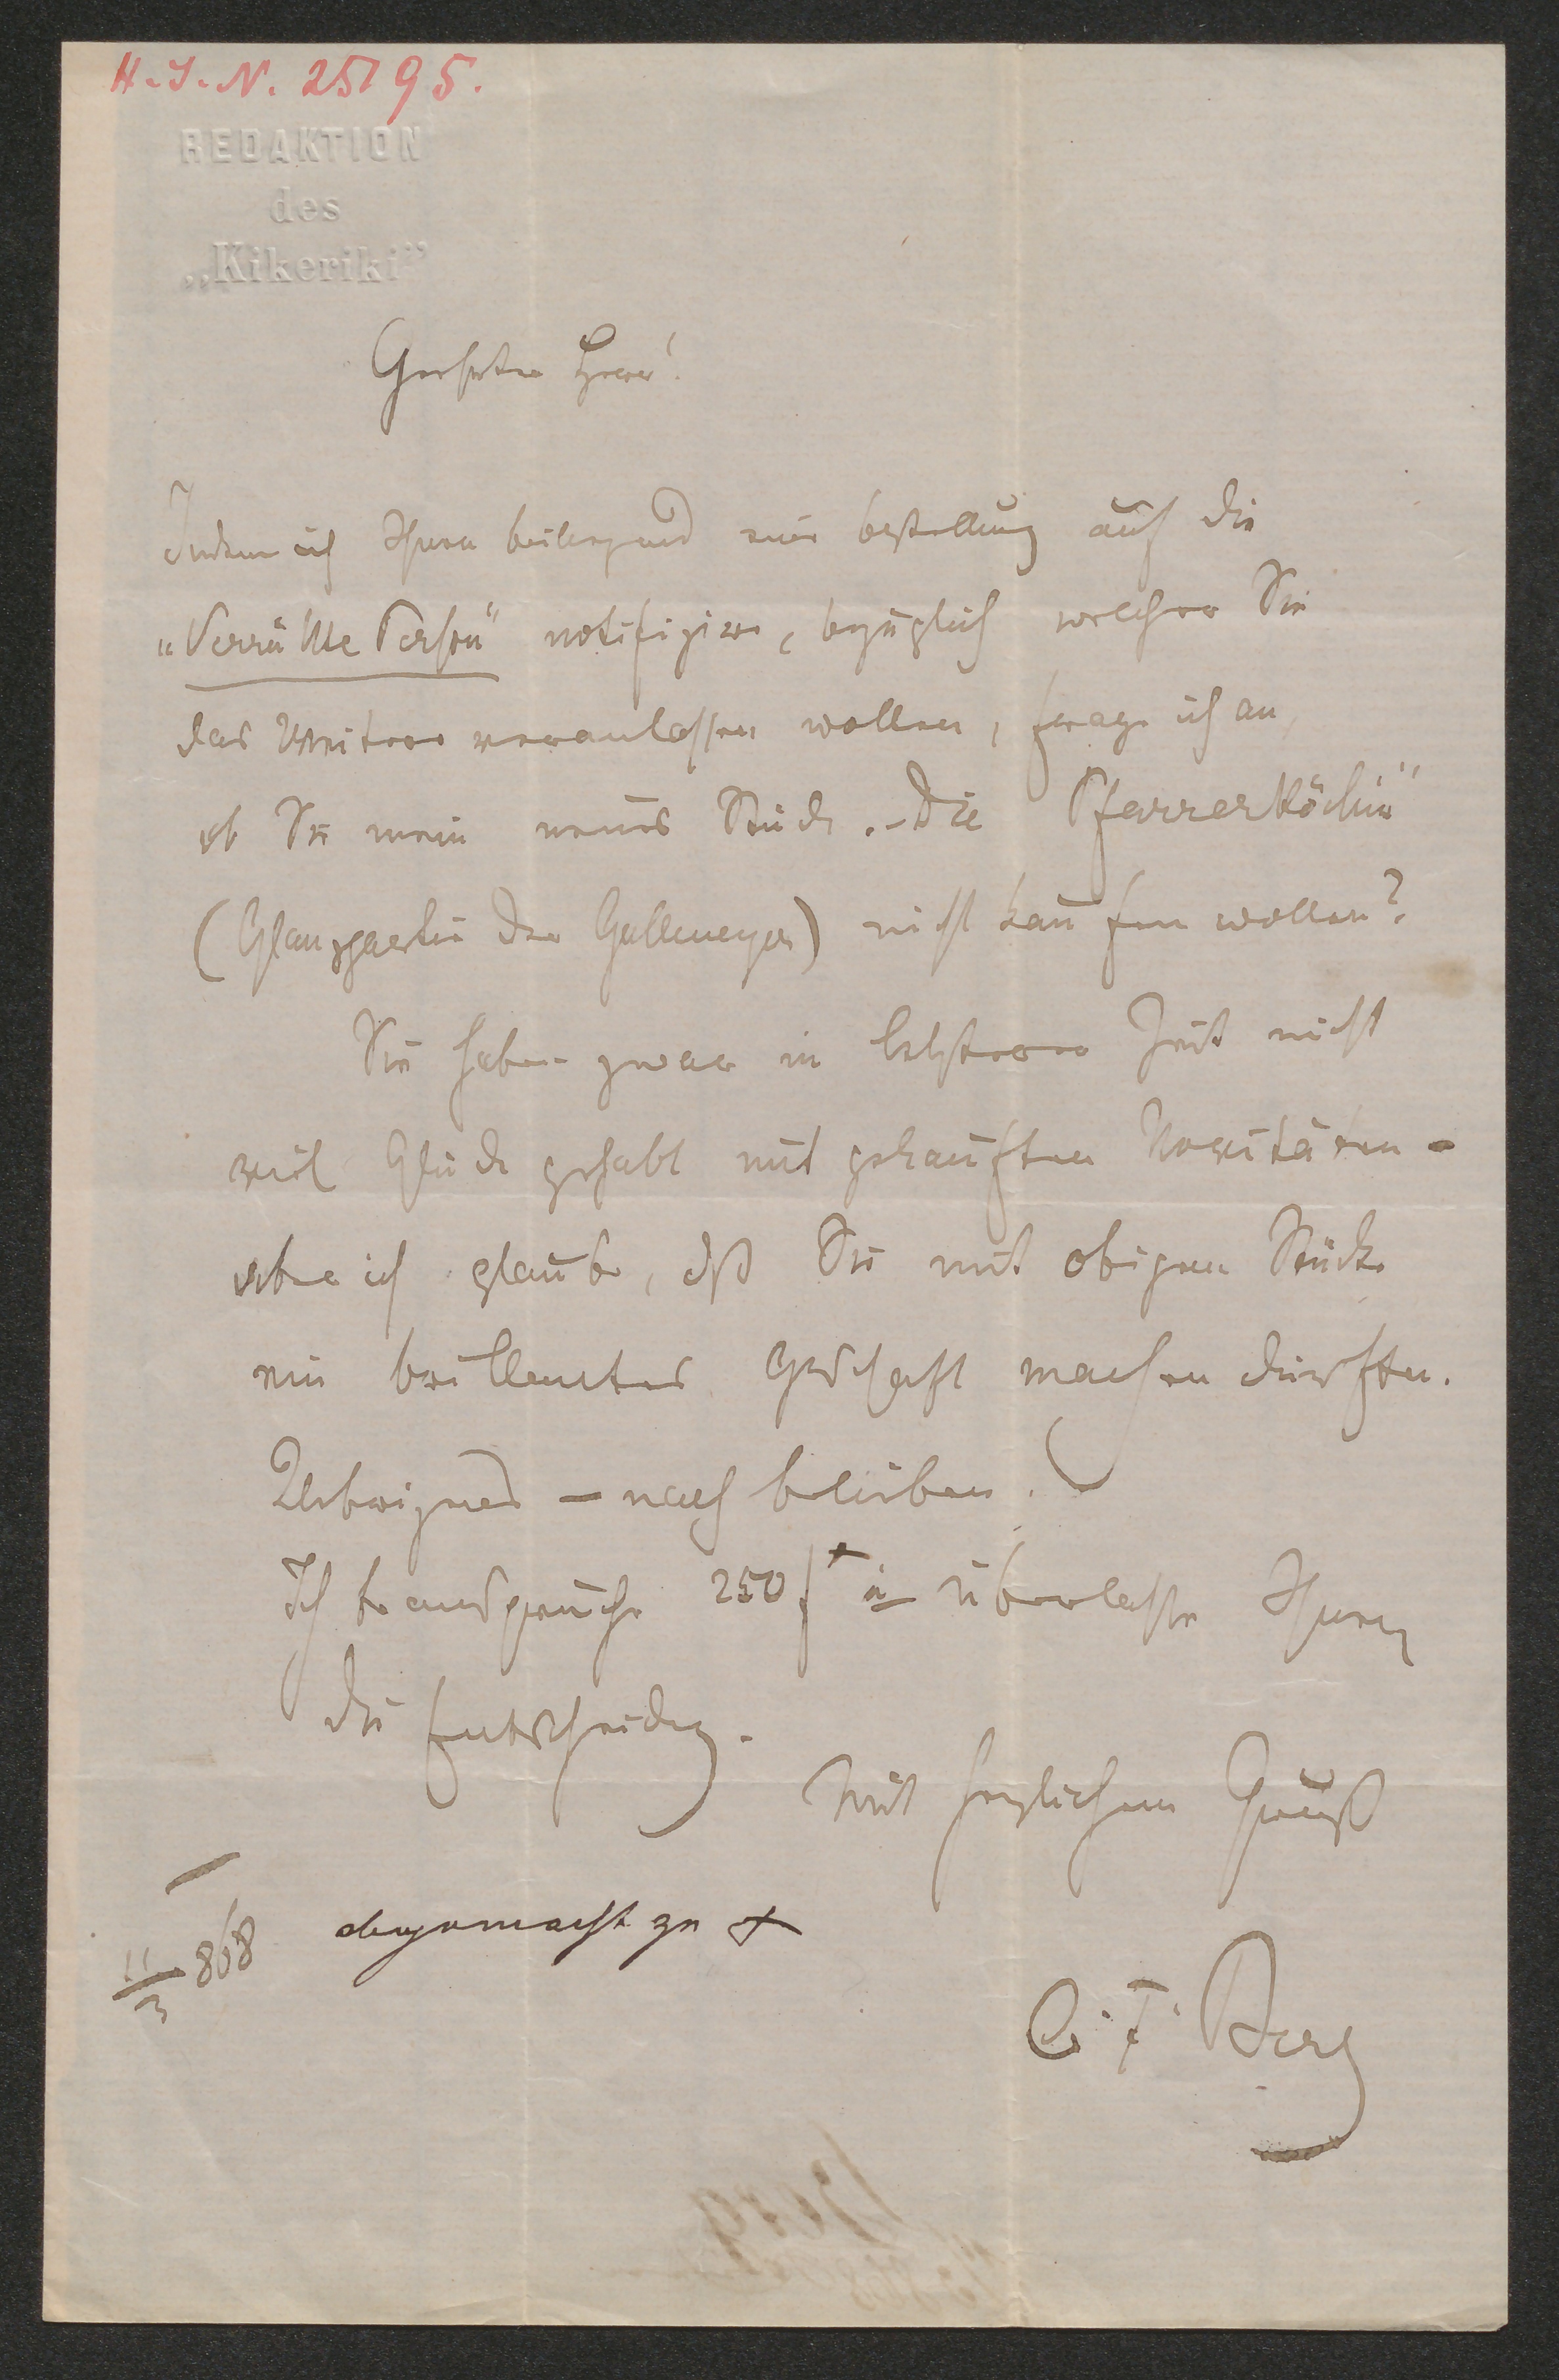 H.I.N. 25195.
REDAKTION
des
„Kikeriki"
Geehrter Herr!
Indem ich Ihnen beiliegend eine bestellung auf die
„Verrückte Person" notifizire, bezüglich welcher Sie
das Weitere veranlassen wollen, frage ich an,
ob Sie mein neues Stück „Die Pfarrerköchin"
(Glanzpartie der Gallmeyer) nicht kaufen wollen?
Sie haben zwar in letzterer Zeit nicht
viel Glück gehabt mit gekauften Novitäten –
aber ich glaube, dß Sie mit obigem Stücke
ein brillantes Geschäft machen dürften.
Uebrigens – nach belieben.
Ich beanspruche 250 f + u überlasse Ihnen
die Entscheidg.
Mit herzlichem Gruß
11/3 868
abgemacht zu +
O. F. Berg
Berg